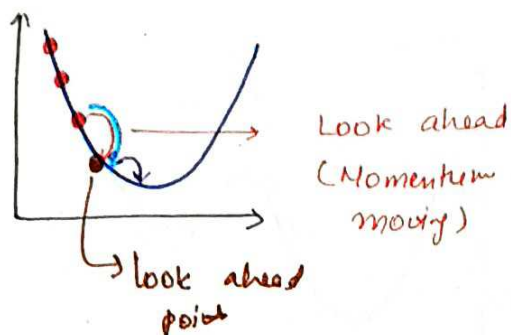 Look ahead
(Momentum
moving)
look ahead
point